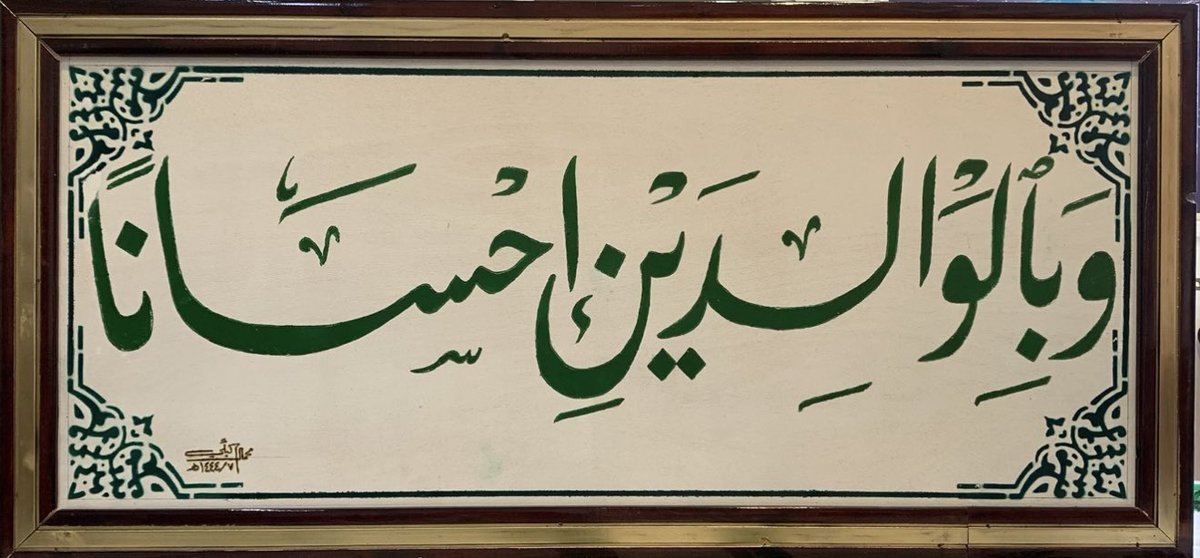 وَبِٱلْوَٰلِدَيْنِ إِحْسَانًا
١٤٤٤/٧هـ